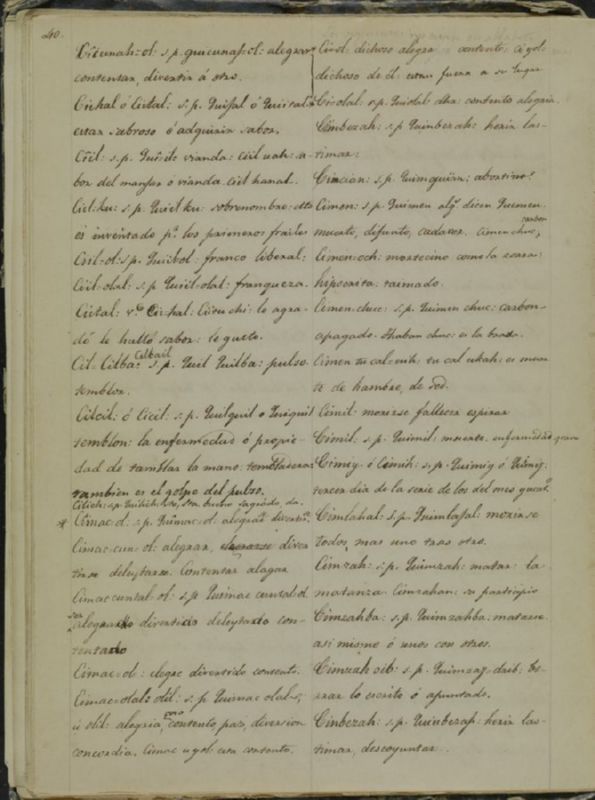 20.
Cicunah=ol: s.p. quicunah=ol: alegrar
contentar, divertir á otro.
Cichal ó Cictal: s.p.
estar sabroso ó adquirir sabor.
Ciil: s.p. vianda: ciil uah: sa-
bor del manjar ó vianda. ciil hanal.
Ciil-ku: s.p. sobrenombre: esto
es inventado pr. los primeros frailes
Ciil-ol: s.p. franco liberal:
Ciil-olal: s.p. Quiil-olal: franqueza.
Cictal: Cichal: le agra-
dó le halló sabor: le gustó.
Cil-Cilba: s.p. Quil Quilba: pulso
temblor.
Cilcil: ó Cicil: s.p. Quilquil o Quiquil
temblor: la enfermedad ó propie-
dad de temblar la mano:
tambien es el golpe del pulso.
Cimac-ol: s.p. Quimac-ol: alegria
Cimac-cun-ol: alegrar, diver
tirse deleytarse. Contentar alagar
Cimaccuntal-ol: s.p. Quimac cuntal-ol
divertido deleytado con-
tentado
Cimac-ol: alegre divertido contento.
Cimac-olal: olil: s.p. Quimac olal,
ú olil: alegria, contento, paz, diversion
concordia. Cimac u yol: esta contento.
Ci-ol: dichoso alegre contento: ci yol:
dichoso de él: estar fuera a su lugar
Ciolal: s.p. dha: contento alegria.
Cimbezah: s.p. Quimbezah: herir las-
timar:
Cimcian: s.p. abortivo:
Cimen: s.p. Quimen algs. dicen Quemen
muerto, difunto, cadaver. cimen chuc, carbon
Cimen-och: mortecino como la zorra:
hipocrita: taimado.
Cimen-chuc: s.p. Quimen chuc: carbon-
apagado. Thaban chuc: es la brasa.
Cimen tu cal-uih, tu cal ukah: es muer
to de hambre, de sed.
Cimil: morirse fallecer espirar
Cimil: s.p. Quimil: muerte: enfermedad grave
Cimiy ó Cimih: s.p. Quimiy ó Quimij:
tercer dia de la serie de los del mes yucatco.
Cimlahal: s.p. Quimlahal: morirse
todos, mas uno tras otro.
Cimzah: s.p. Quimzah: matar: la
matanza. Cimzahan: su participio
Cimzahba: s.p. Quimzahba: matarse
asi mismo ó unos con otros.
Cimzah oib: s.p.
rrar lo escrito ó apuntado.
Cinbezah: s.p. Quinbezah: herir las-
timar, descoyuntar.